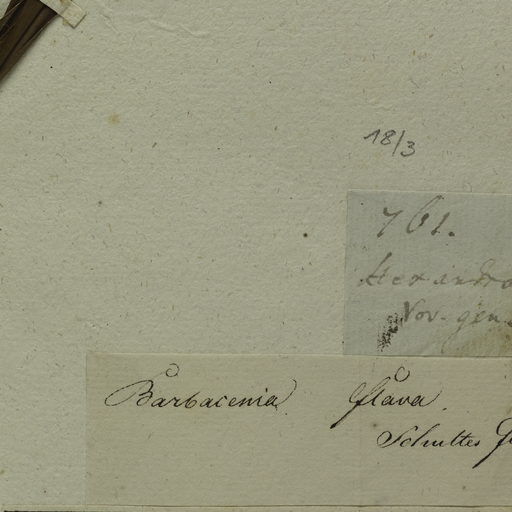 18/3
761.
Hexandr
Nov. gen.
Barbacenia flava.
Schultes